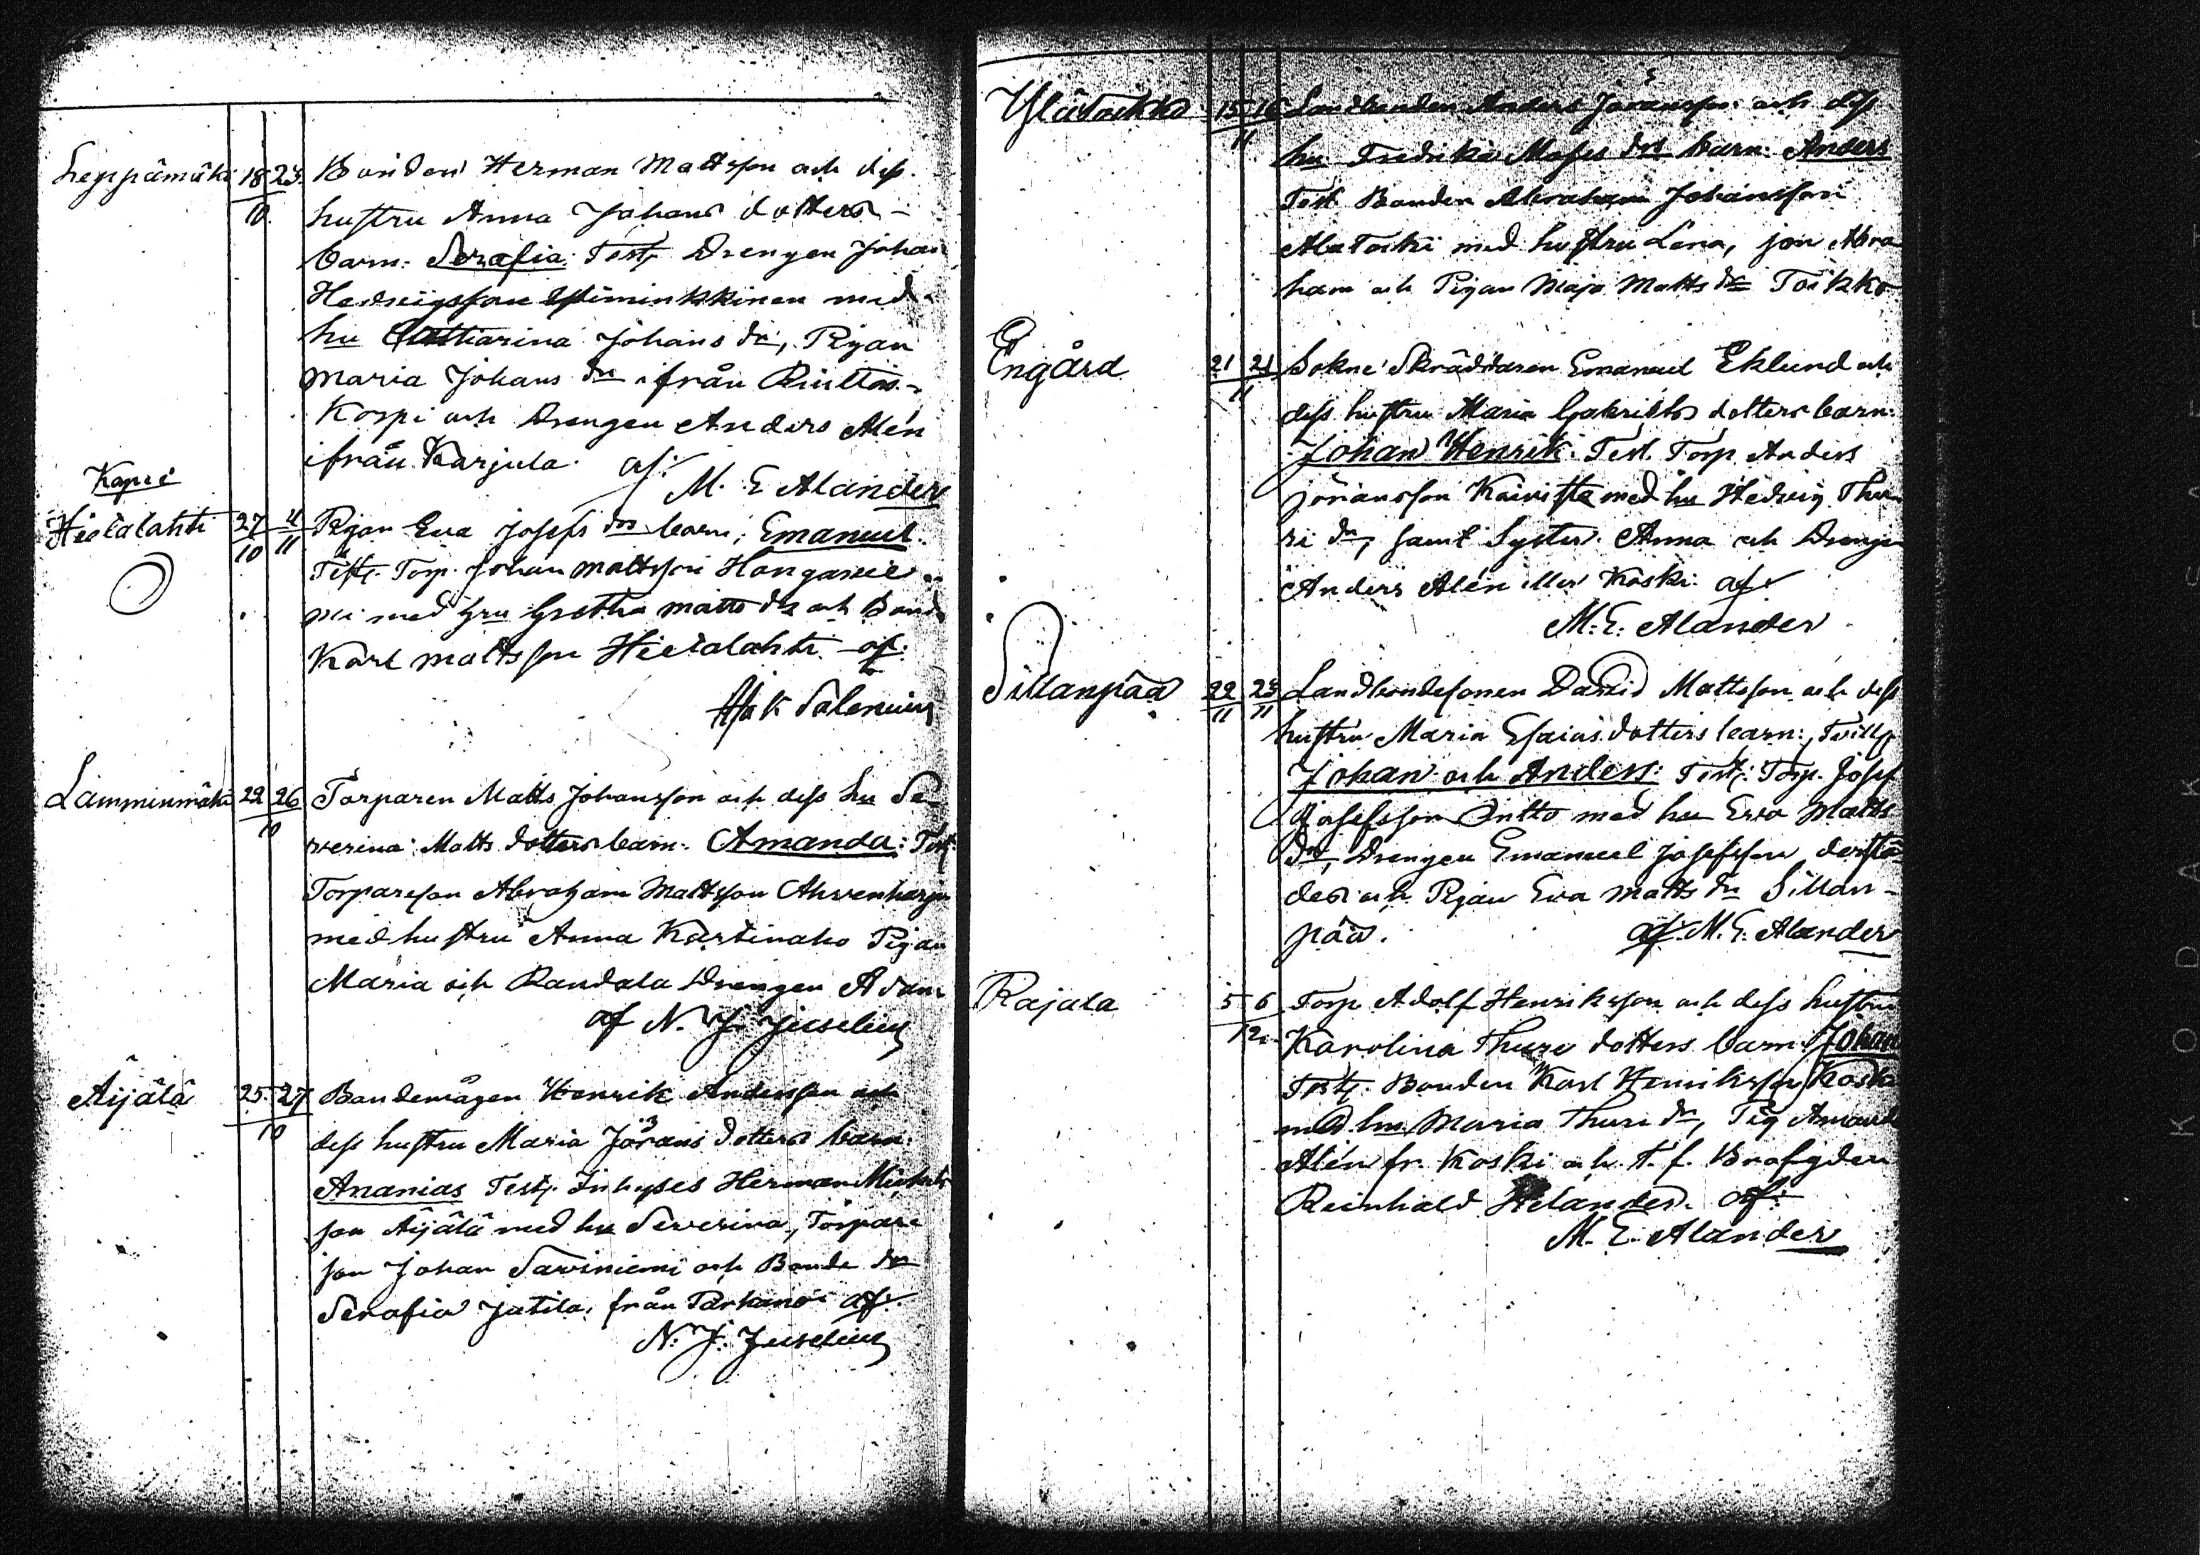 Leppämäki 18 23 Bonden Herman Mattsson och dess
10 hustru Anna Johans dotters
barn: Serafia: Test: Drengen Johan
Hedvigsson med
hu Catharina Johans dr, Pigan
Maria Johans dr ifrån Riuttas-
Korpi och Drengen Anders Alén
ifrån Karjula. af:
M. E Alander
Kapel
Hietalahti 27 4 Pigan Eva Josefs drs barn; Emanuel.
10 11 Test: Torp. Johan Mattsson
med hru Gretha Matts dr och Bond
Karl Mattsson Hietalahti af:
Isak Salenius
Lamminmäki 22 26 Torparen Matts Johansson och dess hu Se-
10 verina Matts dotters barn: Amanda: Test:
Torpareson Abraham Mattsson Ahvenharju
med hustru Anna Pigan
Maria och Randala Drengen Adam
af N. J. Juselius
Äijälä 25 27 Bondemågen Henrik Andersson och
10 dess hustru Maria Jörans dotters barn:
Ananias Test: Inhyses Herman Michels
son Äijälä med hu Severina, Torpare
son Johan Saviniemi och Bonde dr
Serafia Jatila, från Parkano af:
N. J. Juselius
Ylätoikko 15 16 Landbonden Anders Jöransson och dess
11 hu Fredrika Moses drs barn: Anders
Test Bonden Abraham Johansson
Alatoiki med hustru Lena, son Abra
ham och Pigan Maja Matts dr Toikko
Engård 21 21 Sokne Skräddaren Emanuel Eklund och
11 dess hustru Maria Gabriels dotters barn:
Johan Henrik: Test. Torp Anders
Jöransson Koivisto med hu Hedvig Thu
ri dr, samt Syster Anna och Drengen
Anders Alén Koski: af
M. E. Alander
Sillanpää 22 23 Landbondesonen David Mattsson och dess
11 11 hustru Maria Esaias dotters barn:, Tvill:
Johan och Anders: Test: Torp. Josef
Josefsson med hu Eva Matts
dr, Drengen Emanuel Josefsson derstä
des och Pigan Eva Matts dr Sillan-
pää. af M. E. Alander
Rajala 5 6 Torp Adolf Henriksson och dess hustru
12 Karolina Thure dotters barn: Johan
Test: Bonden Karl Henriksson Koski
med hu Maria Thuri dr, Pig Amanda
Alén fr. Koski och t. f. Brofogden
Reinhold Helander. af:
M. E. Alander